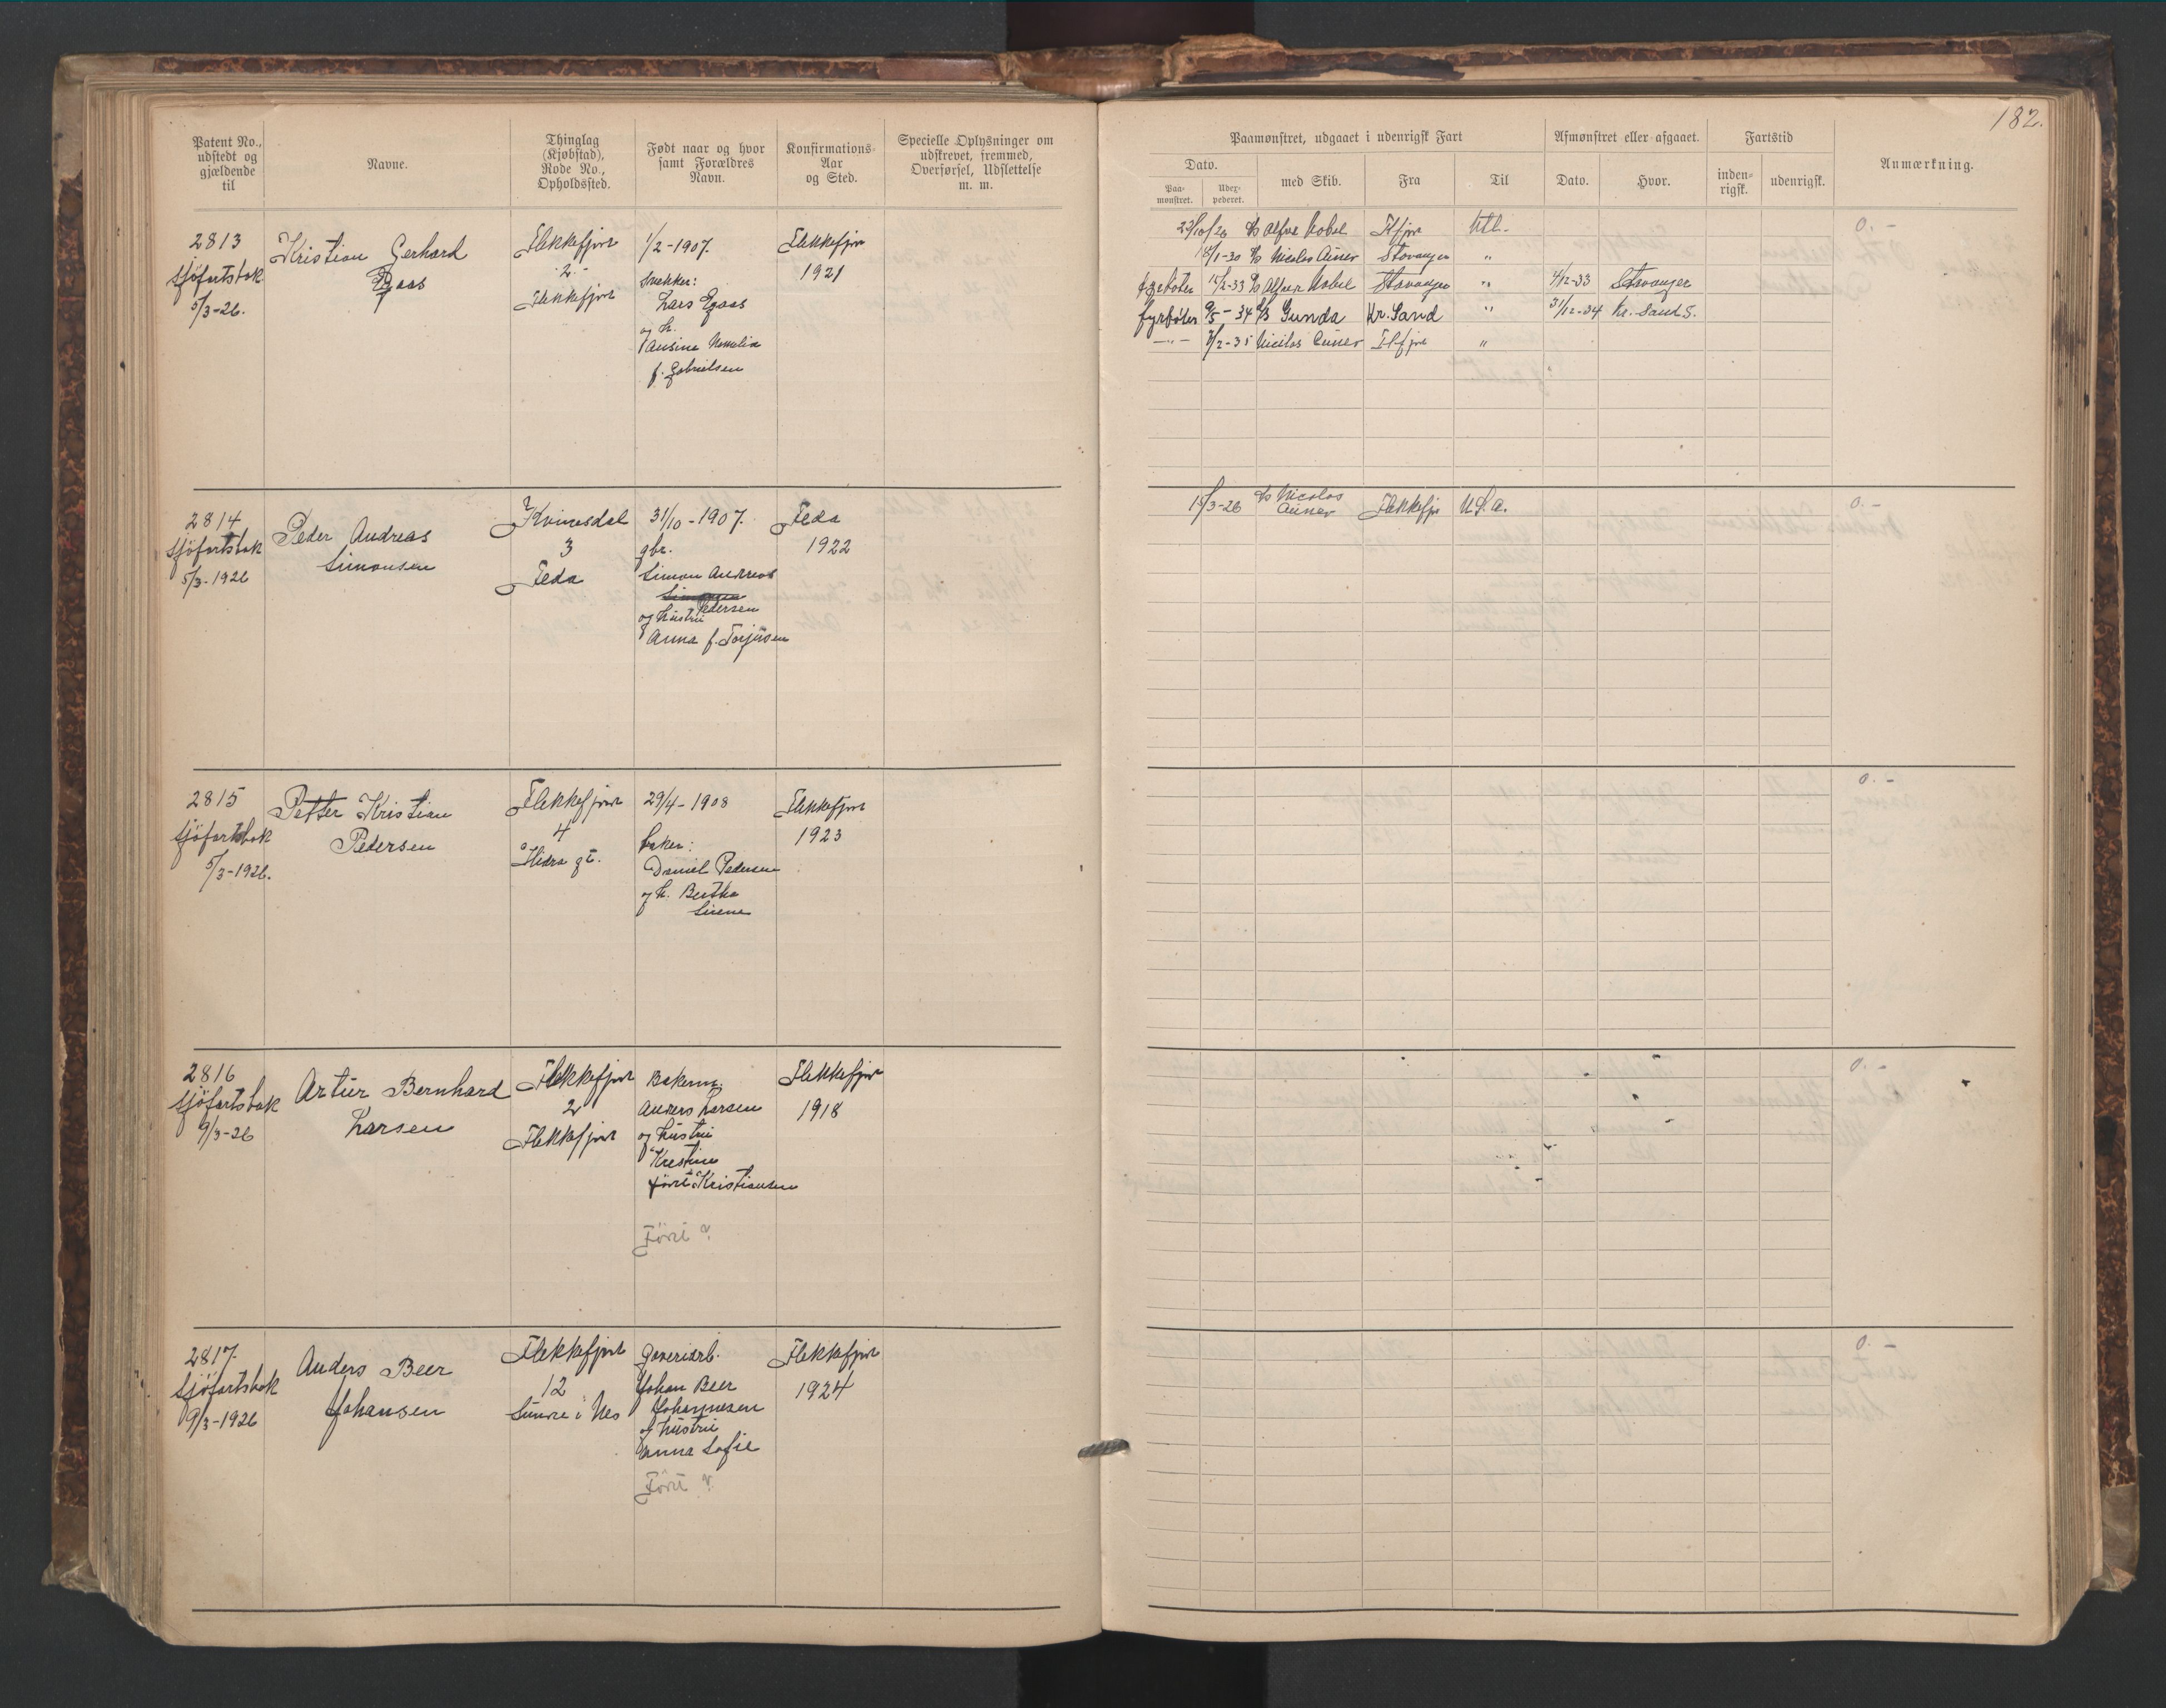 182.
Patent No.,
udstedt og
gjældende
til
Navne.
Thinglag
(Kjøbstad),
Rode No.,
Opholdssted.
Født naar og hvor
samt Forældres
Navn.
Konfirmations-
Aar
og Sted.
Specielle Oplysninger om
udskrevet, fremmed,
Overførsel, Udslettelse
m. m.
Paamønstret, udgaaet i udenrigsk Fart
Dato.
Paa-
mønstret.
Udex-
pederet.
med Skib.
Fra
Til
Afmønstret eller afgaaet.
Dato.
Hvor.
Fartstid
inden-
rigsk.
udenrigsk.
Anmærkning.
2813
sjöfartsbok
5/3-26.
Kristian Gerhard
Flekkefjord
2.
Flekkefjord
1/2-1907.
snekker:
Lars
og h.
f. Gabrielsen
Flekkefjor
1921
23/10/26 d/s Alfred Nobel Fl.fjor Utl.
18/1-30 d/s Nicolas Cuner Stavanger "
fyrböter 12/2-33 d/s Alfred Nobel Stavanger " 4/12-33 Stavanger
fyrböter 9/5-34 d/s Gunda Kr. Sand " 31/12-34 Kr. Sand S.
-"- 8/2-35 Nicolas Cuner Fl.fjor "
0.-
2814
sjöfartsbok
5/3-1926
Peder Andreas
Simonsen
Kvinesdal
3
Feda
31/10-1907.
gbr.
Simon Andreas
Simonsen
Pedersen
og hustru
Anna f. Torjusen
Feda
1922
15/3-26 d/s Nicolas
Cuner Flekkefj U.S.a.
0.-
2815
sjöfartsbok
5/3-1926.
Petter Kristian
Pedersen
Flekkefjord
4
Hidra gt.
29/4-1908
baker:
Daniel Pedersen
og h. Bertha
Sirene
Flekkefjord
1923
0.-
2816
sjöfartsbok
9/3-26
Artur Bernhard
Larsen
Flekkefjord
2
Flekkefjord
Bakerm.
Anders Larsen
og hustru
Kristine
född Kristiansen
Född?
Flekkefjord
1918
0.-
2817.
sjöfartsbok
9/3-1926
Anders Beer
Johansen
Flekkefjord
12
Sunde i Nes
Garveriarb.
Johan Beer
Johannesen
og hustru
Anna Sofie
Född?
Flekkefjord
1924
0.-